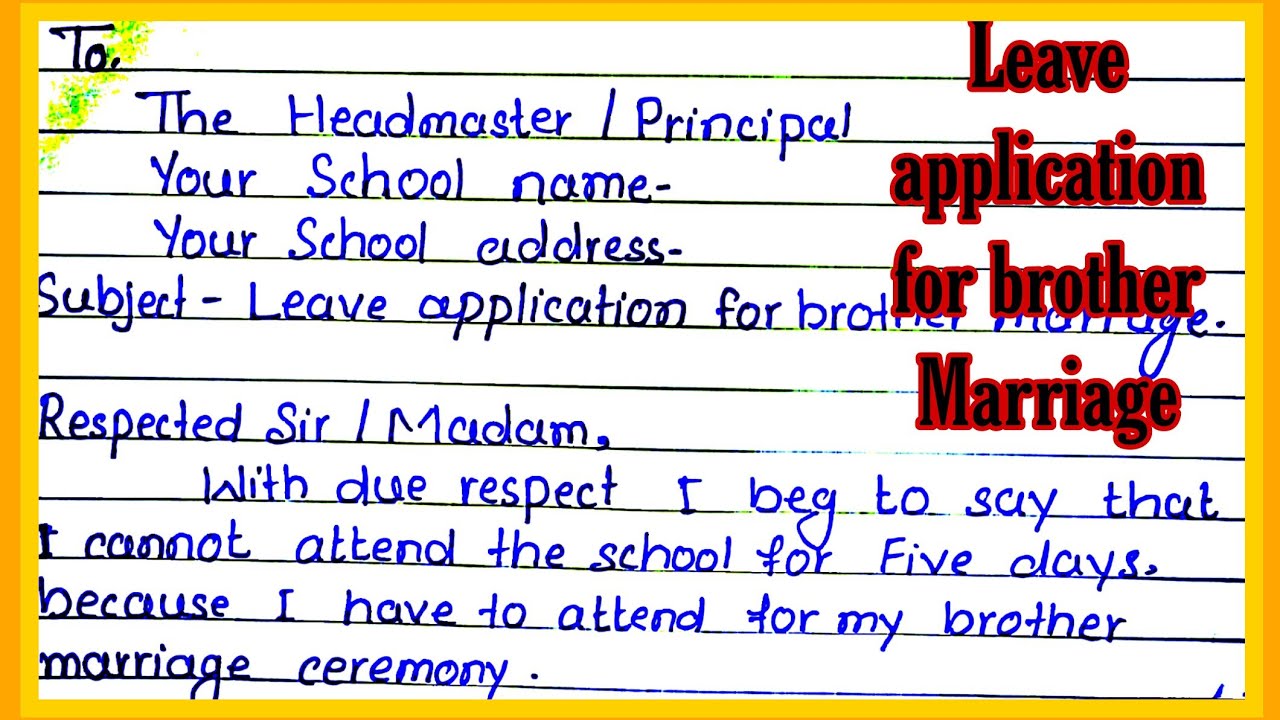 To,
The Headmaster / Principal
Your School name-
Your School address-
Subject - Leave application for brother marriage.
Respected Sir / Madam,
With due respect I beg to say that
I cannot attend the school for Five days.
because I have to attend for my brother
marriage ceremony.
Leave
application
for brother
Marriage